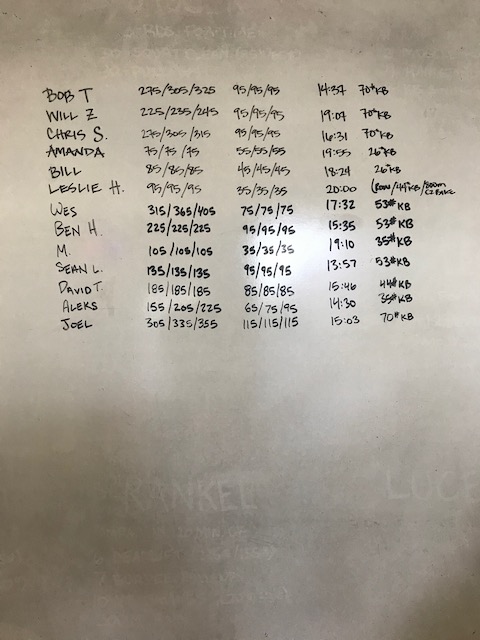 BOB T 275/305/325 95/95/95 14:37 70#KB
WILL Z 225/235/245 95/95/95 19:07 70#KB
CHRIS S. 275/305/315 95/95/95 16:31 70#KB
AMANDA 75/75/75 55/55/55 19:55 26#KB
BILL 85/85/85 45/45/45 18:24 26#KB
LESLIE H. 95/95/95 35/35/35 20:00
WES 315/365/405 75/75/75 17:32 53#KB
BEN H. 225/225/225 95/95/95 15:35 53#KB
M. 105/105/105 35/35/35 19:10 35#KB
SEAN L. 135/135/135 95/95/95 13:57 53#KB
DAVID T. 185/185/185 85/85/85 15:46 44#KB
ALEKS 155/205/225 65/75/95 14:30 35#KB
JOEL 305/335/355 115/115/115 15:03 70#KB
RANKEL